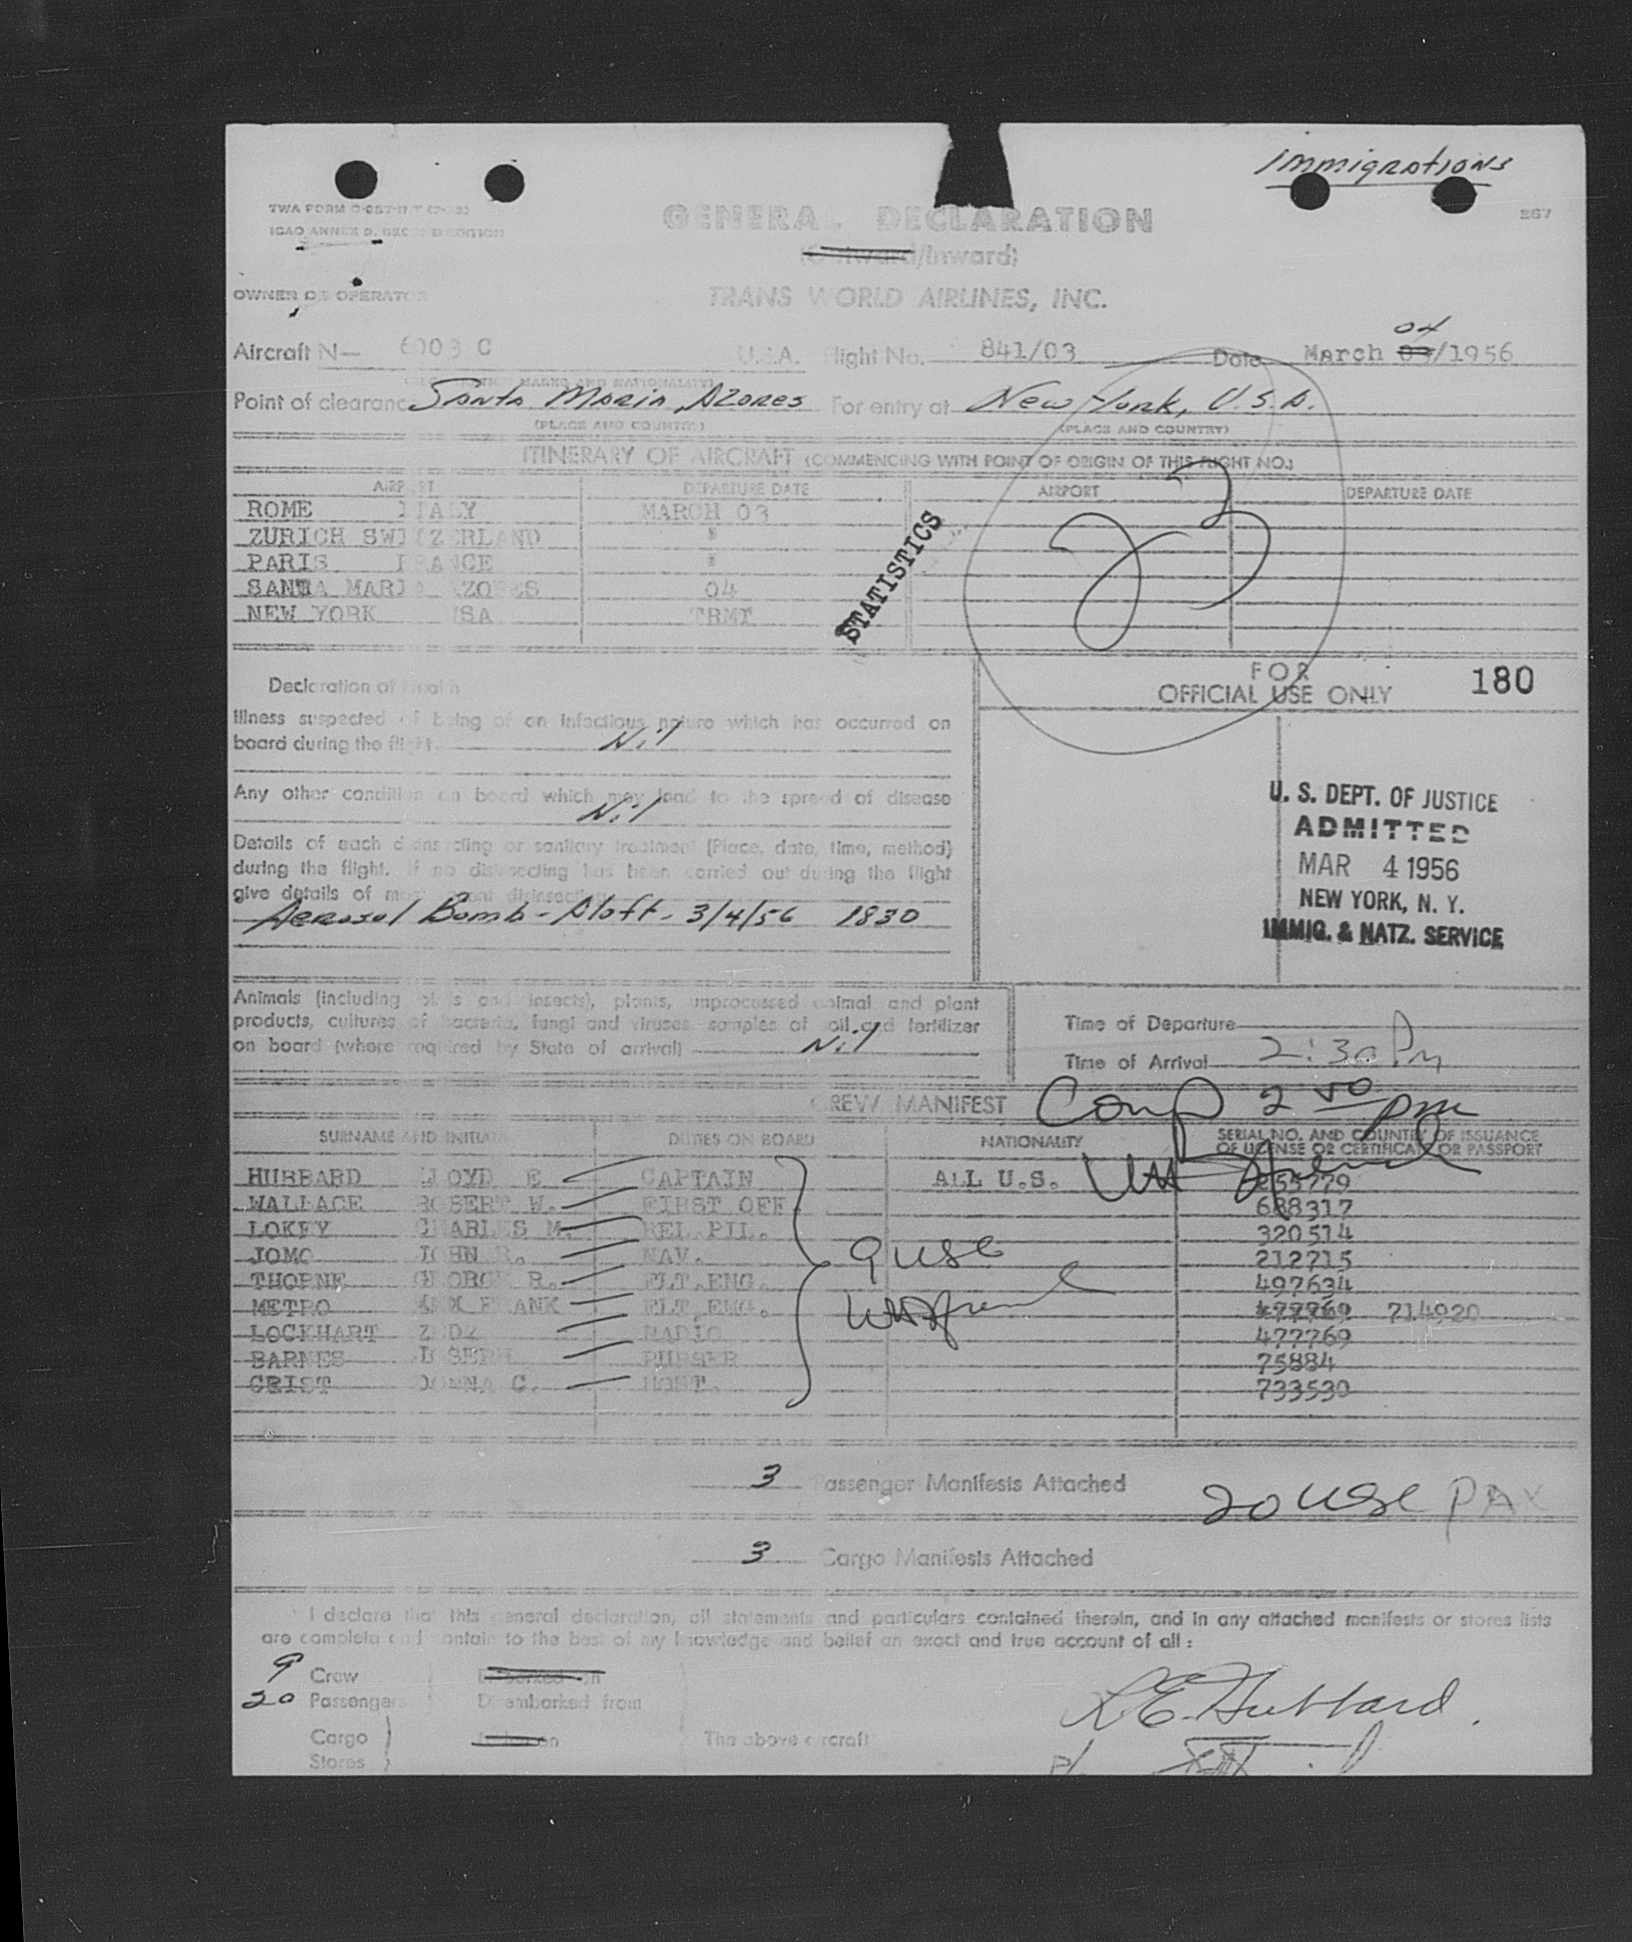 Immigrations
267
GENERAL DECLARATION
(Outward/Inward)
OWNER OR OPERATOR TRANS WORLD AIRLINES, INC.
04
Aircraft N— 6003 C U.S.A. Flight No. 841/03 Date March 03/1956
(REGISTRATION MARKS AND NATIONALITY)
Point of clearance Santa Maria, Azores For entry at New York, U.S.A.
(PLACE AND COUNTRY) (PLACE AND COUNTRY)
ITINERARY OF AIRCRAFT (COMMENCING WITH POINT OF ORIGIN OF THIS FLIGHT NO.)
AIRPORT DEPARTURE DATE AIRPORT DEPARTURE DATE
ROME ITALY MARCH 03
ZURICH SWITZERLAND "
PARIS FRANCE "
SANTA MARIA AZORES 04
NEW YORK USA TRMT
STATISTICS
23
FOR
OFFICIAL USE ONLY 180
Declaration of Health
Illness suspected of being of an infectious nature which has occurred on
board during the flight. Nil
Any other condition on board which may lead to the spread of disease
Nil
Details of each disinsecting or sanitary treatment (Place, date, time, method)
during the flight. If no disinsecting has been carried out during the flight
give details of most recent disinsecting
Aerosol Bomb - Aloft - 3/4/56 1830
U. S. DEPT. OF JUSTICE
ADMITTED
MAR 4 1956
NEW YORK, N. Y.
IMMIG. & NATZ. SERVICE
Animals (including birds and insects), plants, unprocessed animal and plant
products, cultures of bacteria, fungi and viruses samples of soil and fertilizer
on board (where required by State of arrival) Nil
Time of Departure
Time of Arrival 2:30 Pm
CREW MANIFEST Comp 2 50 pm
SURNAME AND INITIALS DUTIES ON BOARD NATIONALITY SERIAL NO. AND COUNTRY OF ISSUANCE
OF LICENSE OR CERTIFICATE OR PASSPORT
HUBBARD LLOYD E CAPTAIN ALL U.S.
WALLACE ROBERT W. FIRST OFF. 688317
LOKEY CHARLES M. REL.PIL. 320514
JOMO JOHN R. NAV. 212715
THORNE GEORGE R. FLT.ENG. 497634
METRO MAX FRANK FLT.ENG. 477769 714920
LOCKHART RADIO 477769
BARNES JOSEPH PURSER 75884
CRIST DONNA C. HOST. 733530
9 USC
3 Passenger Manifests Attached
20 USC PAX
3 Cargo Manifests Attached
I declare that this general declaration, all statements and particulars contained therein, and in any attached manifests or stores lists
are complete and contain to the best of my knowledge and belief an exact and true account of all:
9 Crew
20 Passengers Disembarked from
Cargo
Stores The above aircraft
L E. Hubbard.